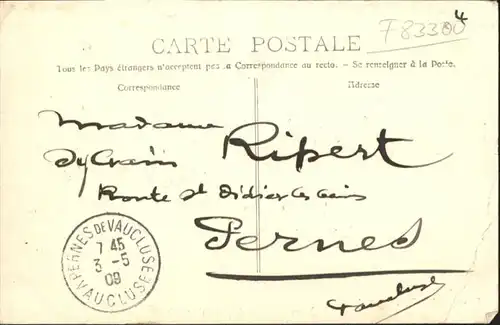 F83300 4
CARTE POSTALE
Tous les Pays étrangers n'acceptent pas la Correspondance au recto. - Se renseigner à la Poste.
Correspondance
Adresse
Madame
Sylvain Ripert
Route St Didier les bains
Pernes
Vaucluse
PERNES DE VAUCLUSE
7 45
3 -5
09
VAUCLUSE